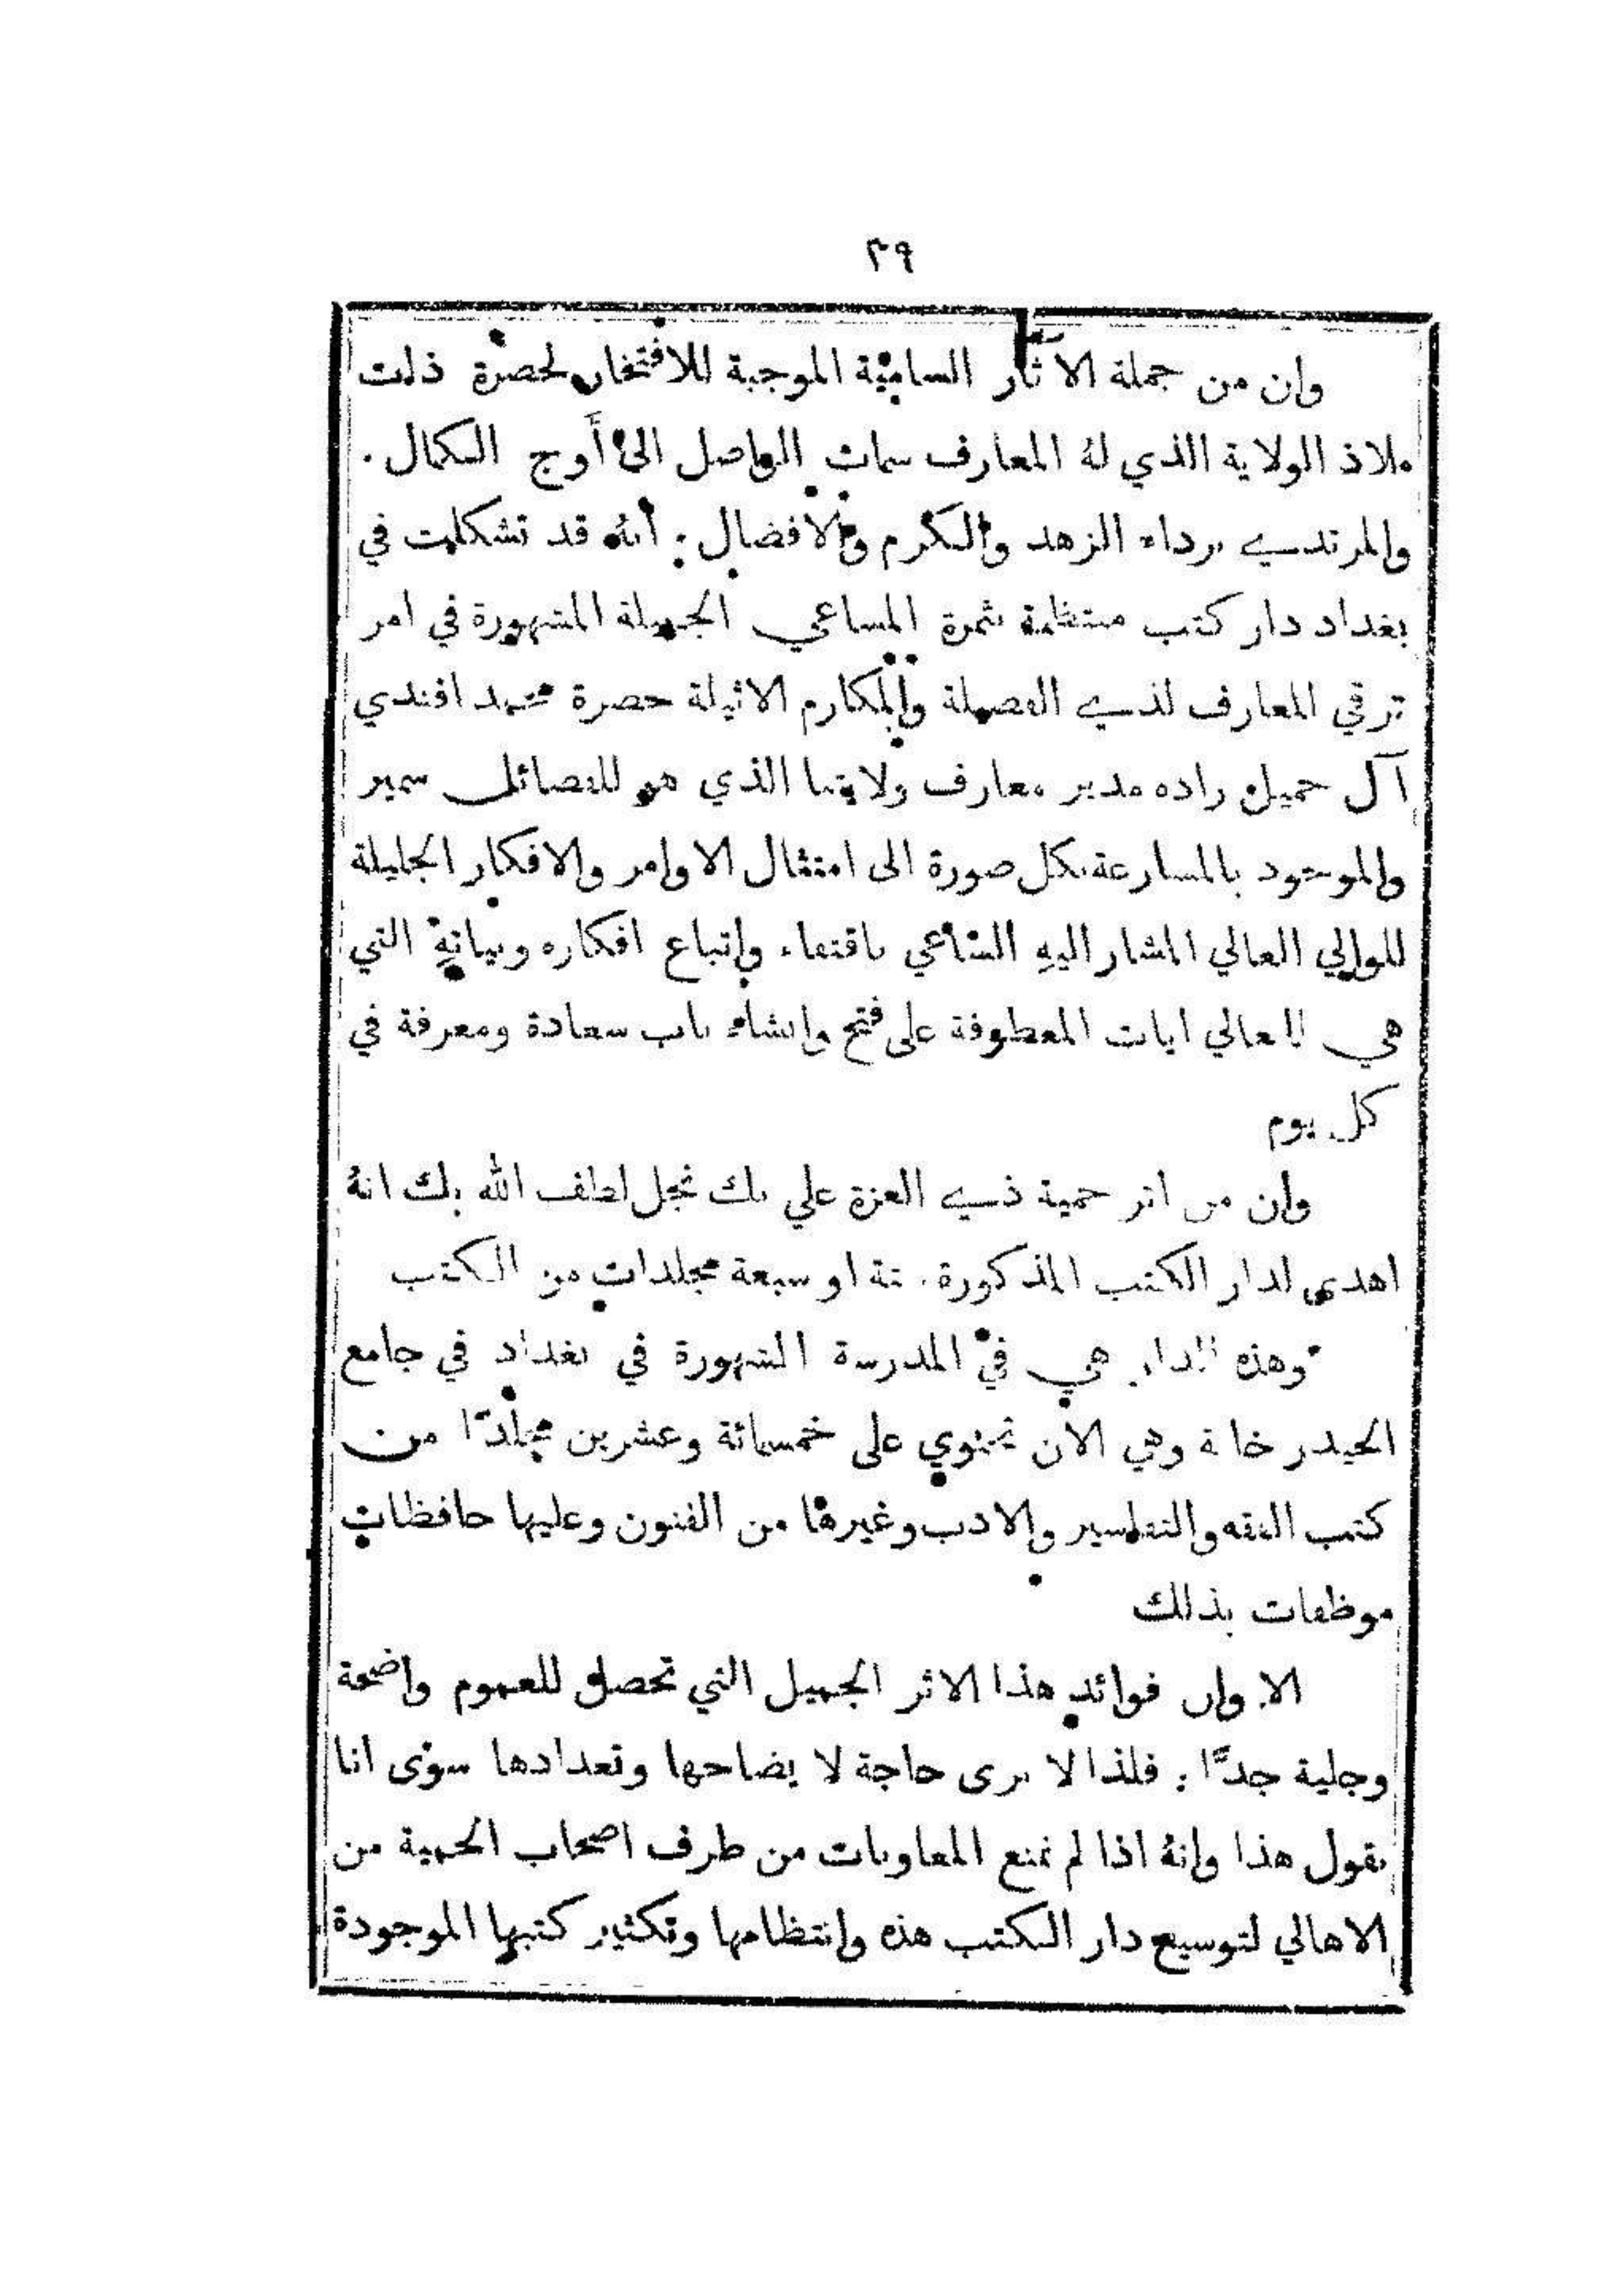 ٣٩
وان من جملة الآثار السامية الموجبة للافتخار لحضرة ذات
ملاذ الولاية الذي له المعارف سمات الواصل الى أوج الكمال .
والمرتدي برداء الزهد والكرم والافضال : أنه قد تشكلت في
بغداد دار كتب منتظمة ثمرة المساعي الجميلة المشهورة في امر
ترقي المعارف لذي الفضيلة والمكارم الاثيلة حضرة محمد افندي
آل جميل زاده مدير معارف ولايتنا الذي هو للفضائل سمير
والموجود بالمسارعة بكل صورة الى امتثال الاوامر والافكار الجليلة
للوالي العالي المشار اليه الساعي باقتفاء واتباع افكاره وبياته التي
هي المعالي ايات المعطوفة على فتح وانشاء باب سعادة ومعرفة في
كل يوم
وان من اثر حمية ذي العزة علي بك نجل لطف الله بك انه
اهدى لدار الكتب المذكورة ستة او سبعة مجلدات من الكتب
وهذه الدار هي في المدرسة الشهورة في بغداد في جامع
الحيدر خانة وهي الان تحتوي على خمسمائة وعشرين مجلدًا من
كتب الفقه والتفاسير والادب وغيرها من الفنون وعليها حافظات
موظفات بذلك
الا وان فوائد هذا الاثر الجميل التي تحصل للعموم واضحة
وجلية جدًّا : فلذا لا نرى حاجة لا يضاحها وتعدادها سوى انا
نقول هذا وانه اذا لم تمنع المعاونات من طرف اصحاب الحمية من
الاهالي لتوسيع دار الكتب هذه وانتظامها وتكثير كتبها الموجودة